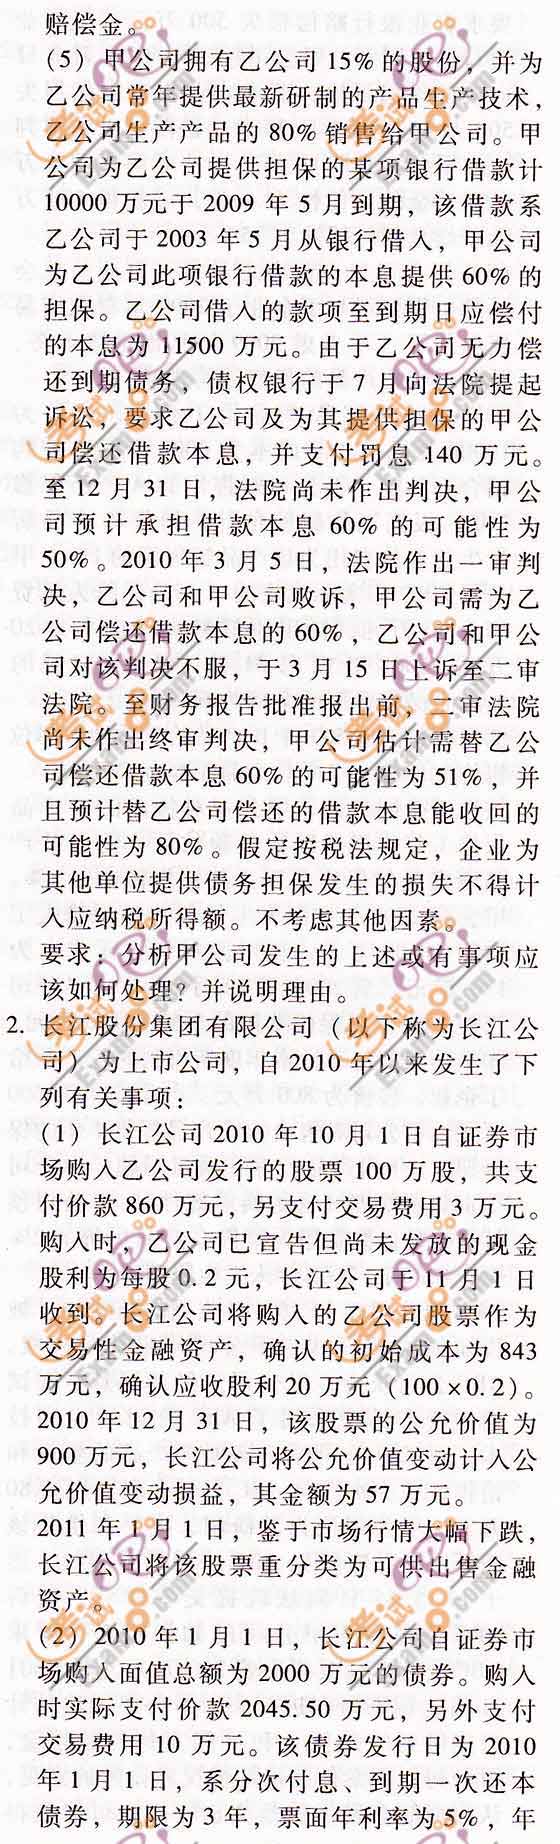 赔偿金。
(5) 甲公司拥有乙公司15%的股份，并为
乙公司常年提供最新研制的产品生产技术，
乙公司生产产品的80%销售给甲公司。甲
公司为乙公司提供担保的某项银行借款计
10000万元于2009年5月到期，该借款系
乙公司于2003年5月从银行借入，甲公司
为乙公司此项银行借款的本息提供60%的
担保。乙公司借入的款项至到期日应偿付
的本息为11500万元。由于乙公司无力偿
还到期债务，债权银行于7月向法院提起
诉讼，要求乙公司及为其提供担保的甲公
司偿还借款本息，并支付罚息140万元。
至12月31日，法院尚未作出判决，甲公
司预计承担借款本息60%的可能性为
50%。2010年3月5日，法院作出一审判
决，乙公司和甲公司败诉，甲公司需为乙
公司偿还借款本息的60%，乙公司和甲公
司对该判决不服，于3月15日上诉至二审
法院。至财务报告批准报出前，二审法院
尚未作出终审判决，甲公司估计需替乙公
司偿还借款本息60%的可能性为51%，并
且预计替乙公司偿还的借款本息能收回的
可能性为80%。假定按税法规定，企业为
其他单位提供债务担保发生的损失不得计
入应纳税所得额。不考虑其他因素。
要求：分析甲公司发生的上述或有事项应
该如何处理？并说明理由。
2. 长江股份集团有限公司（以下称为长江公
司）为上市公司，自2010年以来发生了下
列有关事项：
(1) 长江公司2010年10月1日自证券市
场购入乙公司发行的股票100万股，共支
付价款860万元，另支付交易费用3万元。
购入时，乙公司已宣告但尚未发放的现金
股利为每股0.2元，长江公司于11月1日
收到。长江公司将购入的乙公司股票作为
交易性金融资产，确认的初始成本为843
万元，确认应收股利20万元（100×0.2）。
2010年12月31日，该股票的公允价值为
900万元，长江公司将公允价值变动计入公
允价值变动损益，其金额为57万元。
2011年1月1日，鉴于市场行情大幅下跌，
长江公司将该股票重分类为可供出售金融
资产。
(2) 2010年1月1日，长江公司自证券市
场购入面值总额为2000万元的债券。购入
时实际支付价款2045.50万元，另外支付
交易费用10万元。该债券发行日为2010
年1月1日，系分次付息、到期一次还本
债券，期限为3年，票面年利率为5%，年